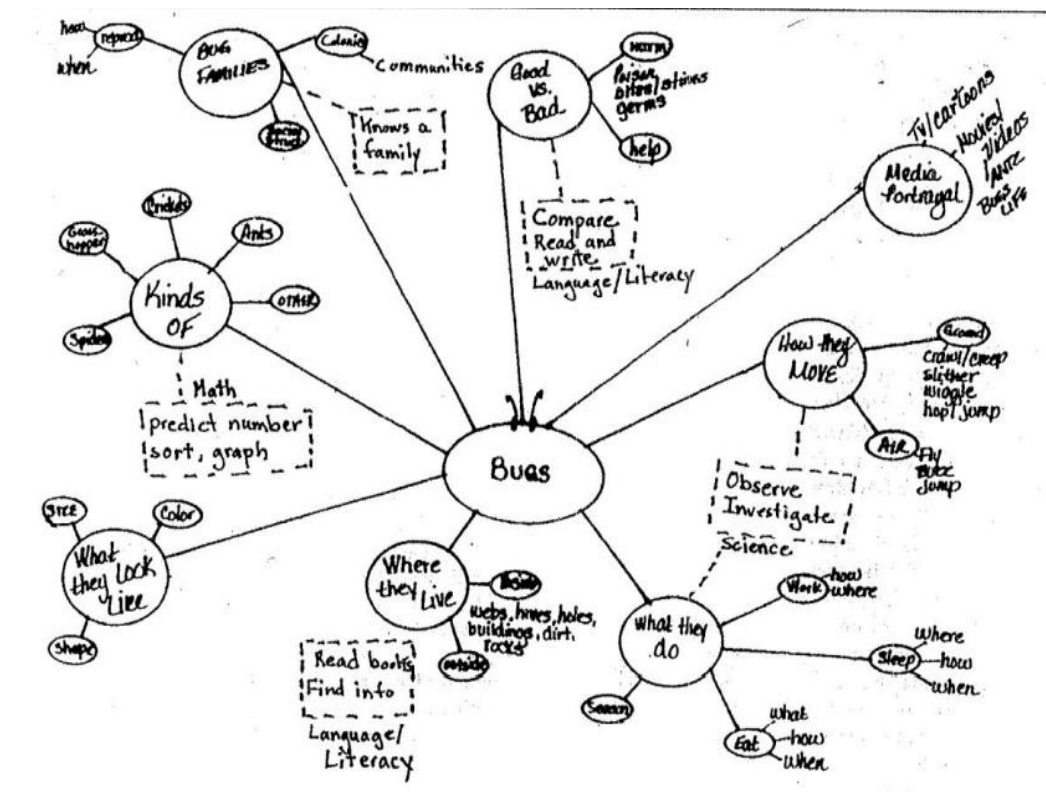 BUG
FAMILIES
reprod
how
when
Colonies
Communities
Social
Struct.
Knows a
family
Good
vs.
Bad
Harm
Poison
bites/stings
germs
help
Compare
Read and
write
Language/Literacy
Media
Portrayal
TV/cartoons
Movies/
Videos
ANTZ
BUGS
LIFE
Kinds
OF
Crickets
Grass
hopper
Ants
OTHER
Spiders
Math
predict number
sort, graph
How they
MOVE
Ground
crawl/creep
slither
wiggle
hop/jump
AIR
Fly
Buzz
jump
Observe
Investigate
Science
Bugs
What
they LOOK
Like
Size
Color
Shape
Where
they Live
Inside
webs, hives, holes,
buildings, dirt,
rocks
outside
Read books
Find info
Language/
Literacy
What they
do
Work
how
where
Sleep
where
how
when
Eat
what
how
when
Season